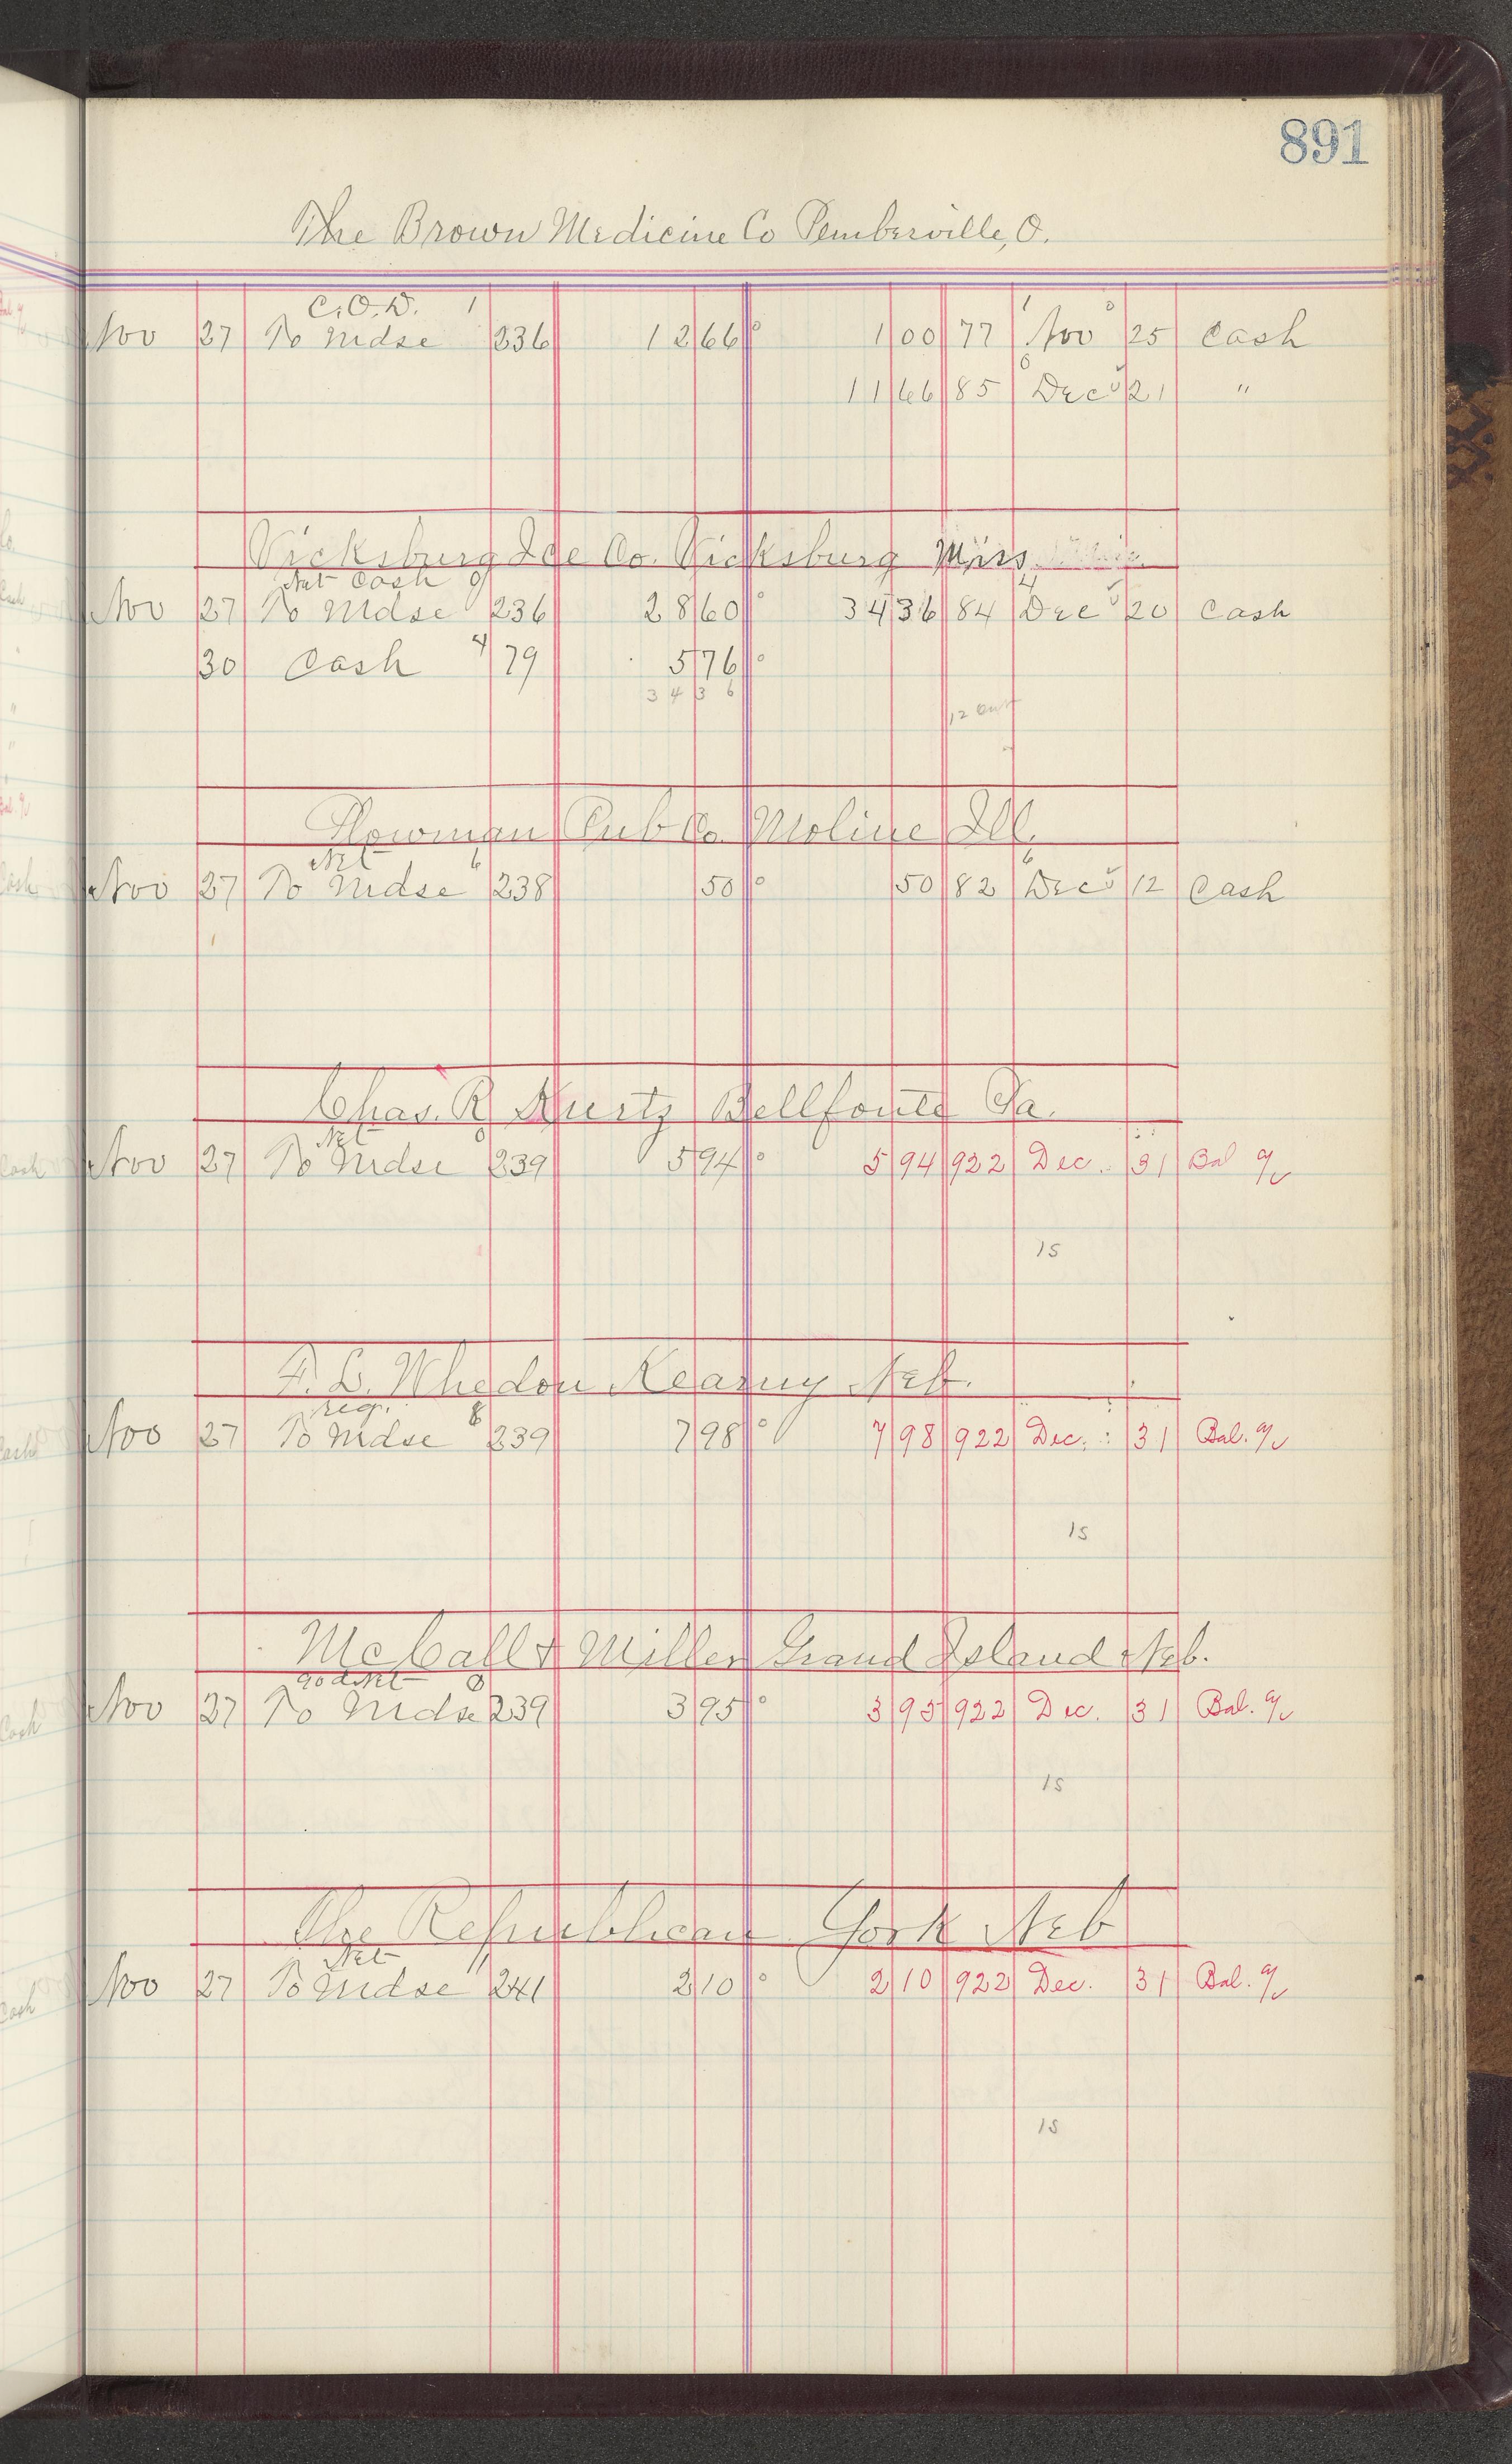 891
The Brown Medicine Co Pemberville, O.
C.O.D. 1
Nov 27 To Mdse 236 12 66 1 00 77 Nov 25 Cash
11 66 85 Dec 21 "
Vicksburg Ice Co. Vicksburg Miss
Net Cash
Nov 27 To Mdse 236 28 60 34 36 84 Dec 20 Cash
30 Cash 79 5 76
34 36
12
Plowman Pub Co. Moline Ill.
Net 6
Nov 27 To Mdse 238 50 50 82 Dec 12 Cash
Chas. R Kurtz Bellfonte Pa.
Net
Nov 27 To Mdse 239 5 94 5 94 922 Dec. 31 Bal a/c
15
F. L. Whedon Kearny Neb.
reg. 8
Nov 27 To Mdse 239 7 98 7 98 922 Dec. 31 Bal. a/c
15
McCall & Miller Grand Island Neb.
90 d Net 8
Nov 27 To Mdse 239 3 95 3 95 922 Dec. 31 Bal. a/c
15
The Republican York Neb
Net 11
Nov 27 To Mdse 241 2 10 2 10 922 Dec. 31 Bal. a/c
15